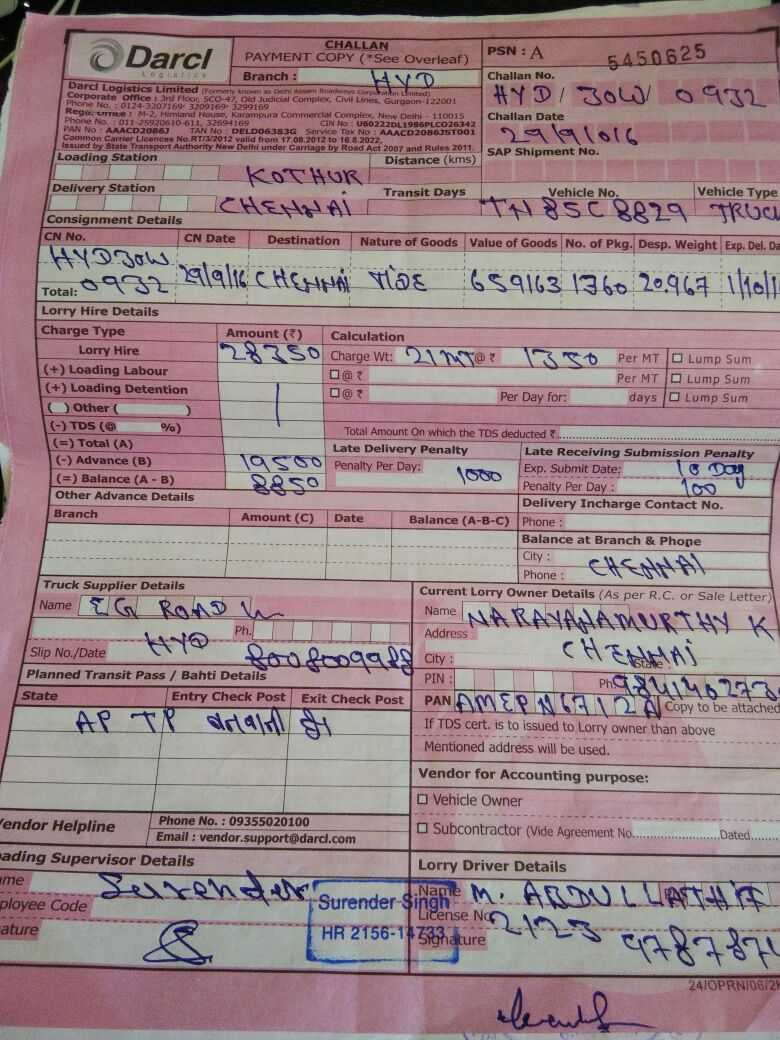 Darcl
Logistics
CHALLAN
PAYMENT COPY (*See Overleaf)
Branch : HYD
PSN : A 5450625
Challan No.
HYD / JOW / 0932
Challan Date
29/9/016
SAP Shipment No.
Darcl Logistics Limited (Formerly known as Delhi Assam Roadways Corporation Limited)
Corporate Office : 3rd Floor, SCO-47, Old Judicial Complex, Civil Lines, Gurgaon-122001
Phone No. : 0124-3207169· 3209169· 3299169
Regd. Office : M-2, Himland House, Karampura Commercial Complex, New Delhi - 110015
Phone No. : 011-25920610-611, 32694169 CIN No : U60222DL1986PLC026342
PAN No : AAACD2086J TAN No : DELD06383G Service Tax No : AAACD2086JST001
Common Carrier Licences No.RT/3/2012 valid from 17.08.2012 to 16.8.2022,
Issued by State Transport Authority New Delhi under Carriage by Road Act 2007 and Rules 2011.
Loading Station KOTHUR Distance (kms)
Delivery Station CHENNAI Transit Days Vehicle No. Vehicle Type
TN 85C 8829 TRUCK
Consignment Details
CN No. CN Date Destination Nature of Goods Value of Goods No. of Pkg. Desp. Weight Exp. Del. Da
HYDJOW
0932 29/9/16 CHENNAI TIDE 659163 1360 20.967 1/10/1
Total:
Lorry Hire Details
Charge Type Amount (₹) Calculation
Lorry Hire 28350 Charge Wt: 21 MT @ ₹ 1350 Per MT Lump Sum
(+) Loading Labour @ ₹ Per MT Lump Sum
(+) Loading Detention @ ₹ Per Day for: days Lump Sum
( ) Other ( )
(-) TDS (@ %) Total Amount On which the TDS deducted ₹
(=) Total (A) Late Delivery Penalty Late Receiving Submission Penalty
(-) Advance (B) 19500 Penalty Per Day: 1000 Exp. Submit Date: 10 Day
(=) Balance (A - B) 8850 Penalty Per Day : 100
Other Advance Details Delivery Incharge Contact No.
Branch Amount (C) Date Balance (A-B-C) Phone :
Balance at Branch & Phone
City : CHENNAI
Phone :
Truck Supplier Details
Name EG ROAD
HYD Ph.
Slip No./Date 8008009988
Current Lorry Owner Details (As per R.C. or Sale Letter)
Name NARAYANAMURTHY K
Address :
City : CHENNAI State :
PIN : Ph.
PAN AMEPN6712A Copy to be attached
If TDS cert. is to issued to Lorry owner than above
Mentioned address will be used.
Planned Transit Pass / Bahti Details
State Entry Check Post Exit Check Post
AP TP
Vendor for Accounting purpose:
Vehicle Owner
Subcontractor (Vide Agreement No. Dated
endor Helpline Phone No. : 09355020100
Email : vendor.support@darcl.com
ading Supervisor Details
me Surender
ployee Code
ature
Surender Singh
HR 2156-14733
Lorry Driver Details
Name M. ABDUL LATHIF
License No 2123
Signature 978787
24/OPRN/06/2K